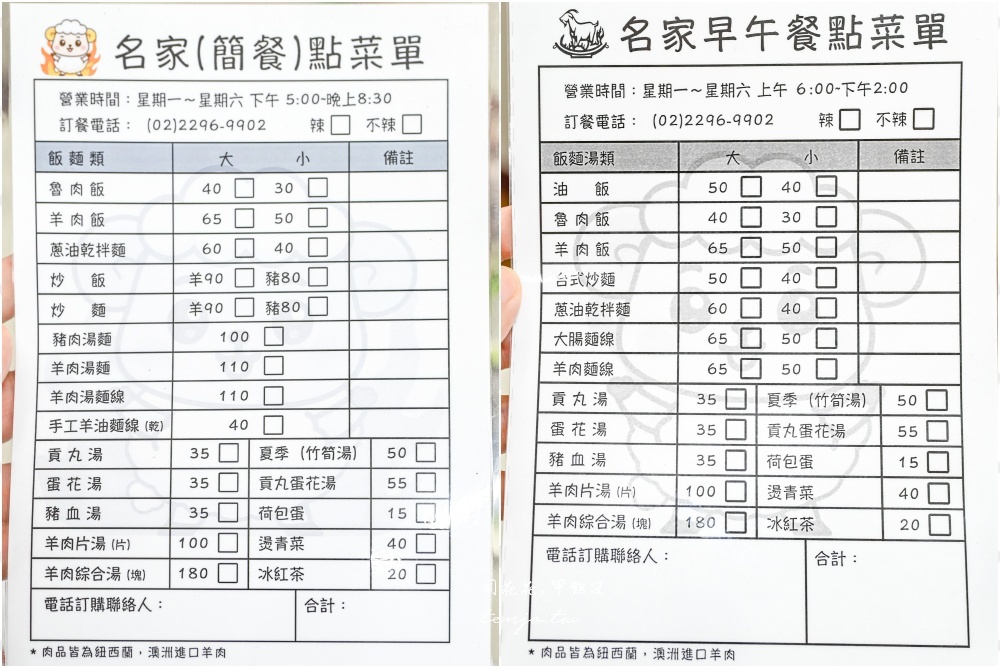 名家(簡餐)點菜單
營業時間：星期一～星期六 下午 5:00~晚上8:30
訂餐電話： (02)2296-9902 辣 不辣
飯麵類 大 小 備註
魯肉飯 40 30
羊肉飯 65 50
蔥油乾拌麵 60 40
炒 飯 羊90 豬80
炒 麵 羊90 豬80
豬肉湯麵 100
羊肉湯麵 110
羊肉湯麵線 110
手工羊油麵線(乾) 40
貢丸湯 35 夏季(竹筍湯) 50
蛋花湯 35 貢丸蛋花湯 55
豬血湯 35 荷包蛋 15
羊肉片湯(片) 100 燙青菜 40
羊肉綜合湯(塊) 180 冰紅茶 20
電話訂購聯絡人： 合計：
* 肉品皆為紐西蘭，澳洲進口羊肉
名家早午餐點菜單
營業時間：星期一～星期六 上午 6:00~下午2:00
訂餐電話： (02)2296-9902 辣 不辣
飯麵湯類 大 小 備註
油 飯 50 40
魯肉飯 40 30
羊肉飯 65 50
台式炒麵 50 40
蔥油乾拌麵 60 40
大腸麵線 65 50
羊肉麵線 65 50
貢丸湯 35 夏季(竹筍湯) 50
蛋花湯 35 貢丸蛋花湯 55
豬血湯 35 荷包蛋 15
羊肉片湯(片) 100 燙青菜 40
羊肉綜合湯(塊) 180 冰紅茶 20
電話訂購聯絡人： 合計：
* 肉品皆為紐西蘭，澳洲進口羊肉